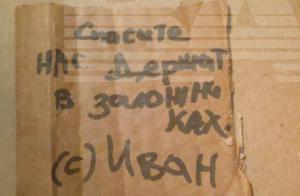 Спасите
НАС ДЕРЖАТ
В ЗАЛОЖНИ
КАХ.
(с) ИВАН